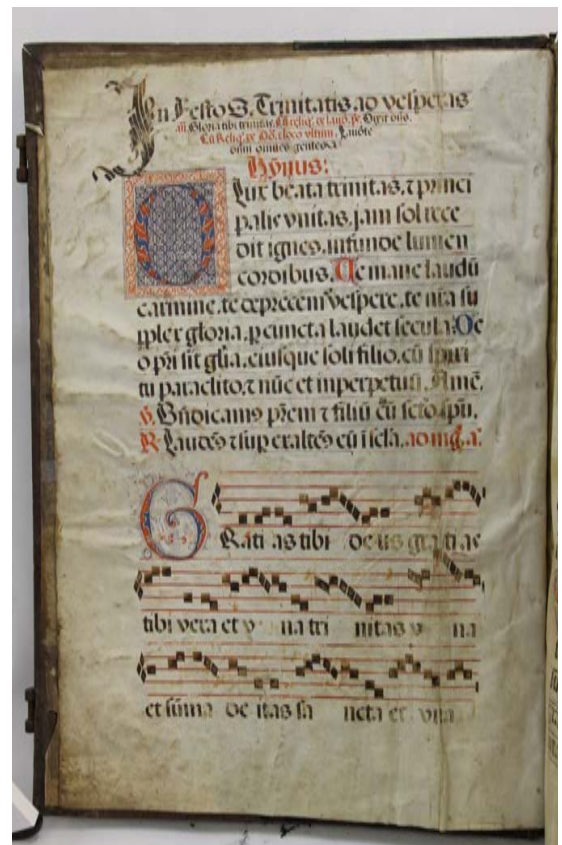 In Festo S. Trinitatis ad vesperas
añ. Gloria tibi trinitas. Cū reliq̃. ex laud. ps. Dixit dñs.
Cū Reliq̃. de Dõ. loco ultimi, Laudate
dñm omnes gentes.
Hymus:
O Lux beata trinitas, ⁊ princi
palis vnitas, jam sol rece
dit igneus, infunde lumen
cordibus. Te mane laudū
carmine, te deprecem² vespere, te nr̃a su
pplex gloria, p̱ cuncta laudet secula. De
o pr̃i sit gl̃ia, eiusque soli filio, cū spiri
tu paraclito, ⁊ nūc et inperpetuū. Amē.
℣. Bñdicam⁹ pr̃em ⁊ filiū cū scto spũ.
℟ Laudem⁹ ⁊ superexaltem⁹ eū i secla. ad mg̃. añ.
GRati as tibi de us gra ti as
tibi vera et v na tri nitas v na
et sūma de itas sa ncta et vna